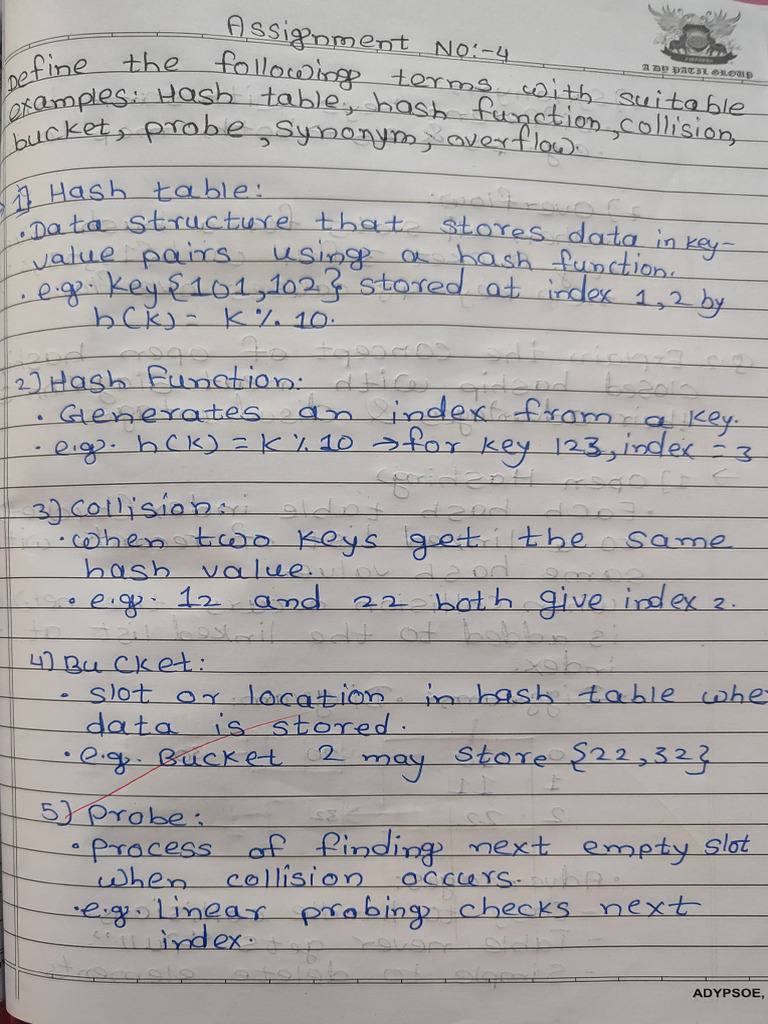 Assignment No:-4
A DY PATIL GROUP
Define the following terms with suitable
examples: Hash table, hash function, collision,
bucket, probe, synonym, overflow.
1) Hash table:
• Data structure that stores data in key-
value pairs using a hash function.
• e.g. key {101,102} stored at index 1,2 by
h(k) = k % 10.
2) Hash Function:
• Generates an index from a key.
• e.g. h(k) = k % 10 → for key 123, index = 3
3) Collision:
• When two keys get the same
hash value.
• e.g. 12 and 22 both give index 2.
4) Bucket:
• Slot or location in hash table whe
data is stored.
• e.g. Bucket 2 may store {22,32}
5) Probe:
• Process of finding next empty slot
when collision occurs.
• e.g. linear probing checks next
index.
ADYPSOE,